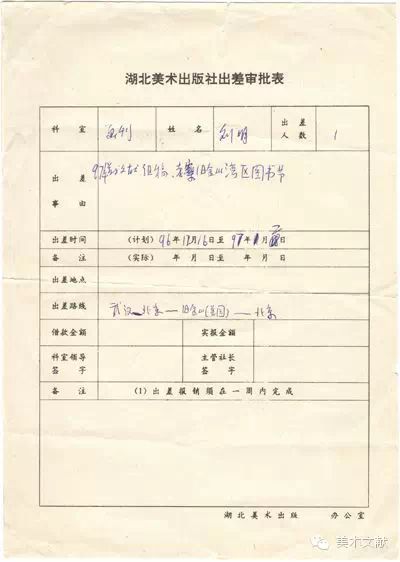 湖北美术出版社出差审批表
科室 画刊 姓名 刘明 出差人数 1
出差事由 组稿、旧金山湾区图书节
出差时间 (计划) 96年12月16日至97年1月 日
备注 (实际) 年 月 日至 年 月 日
出差地点
出差路线 武汉—北京—旧金山(美国)—北京
借款金额 实报金额
科室领导签字 主管社长签字
备注 (1)出差报销须在一周内完成
湖北美术出版 办公室
美术文献